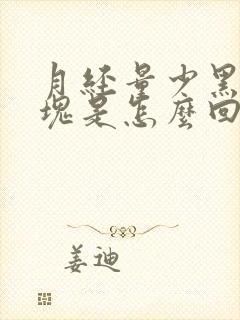 月經量少黑
塊是怎麼回
姜迪